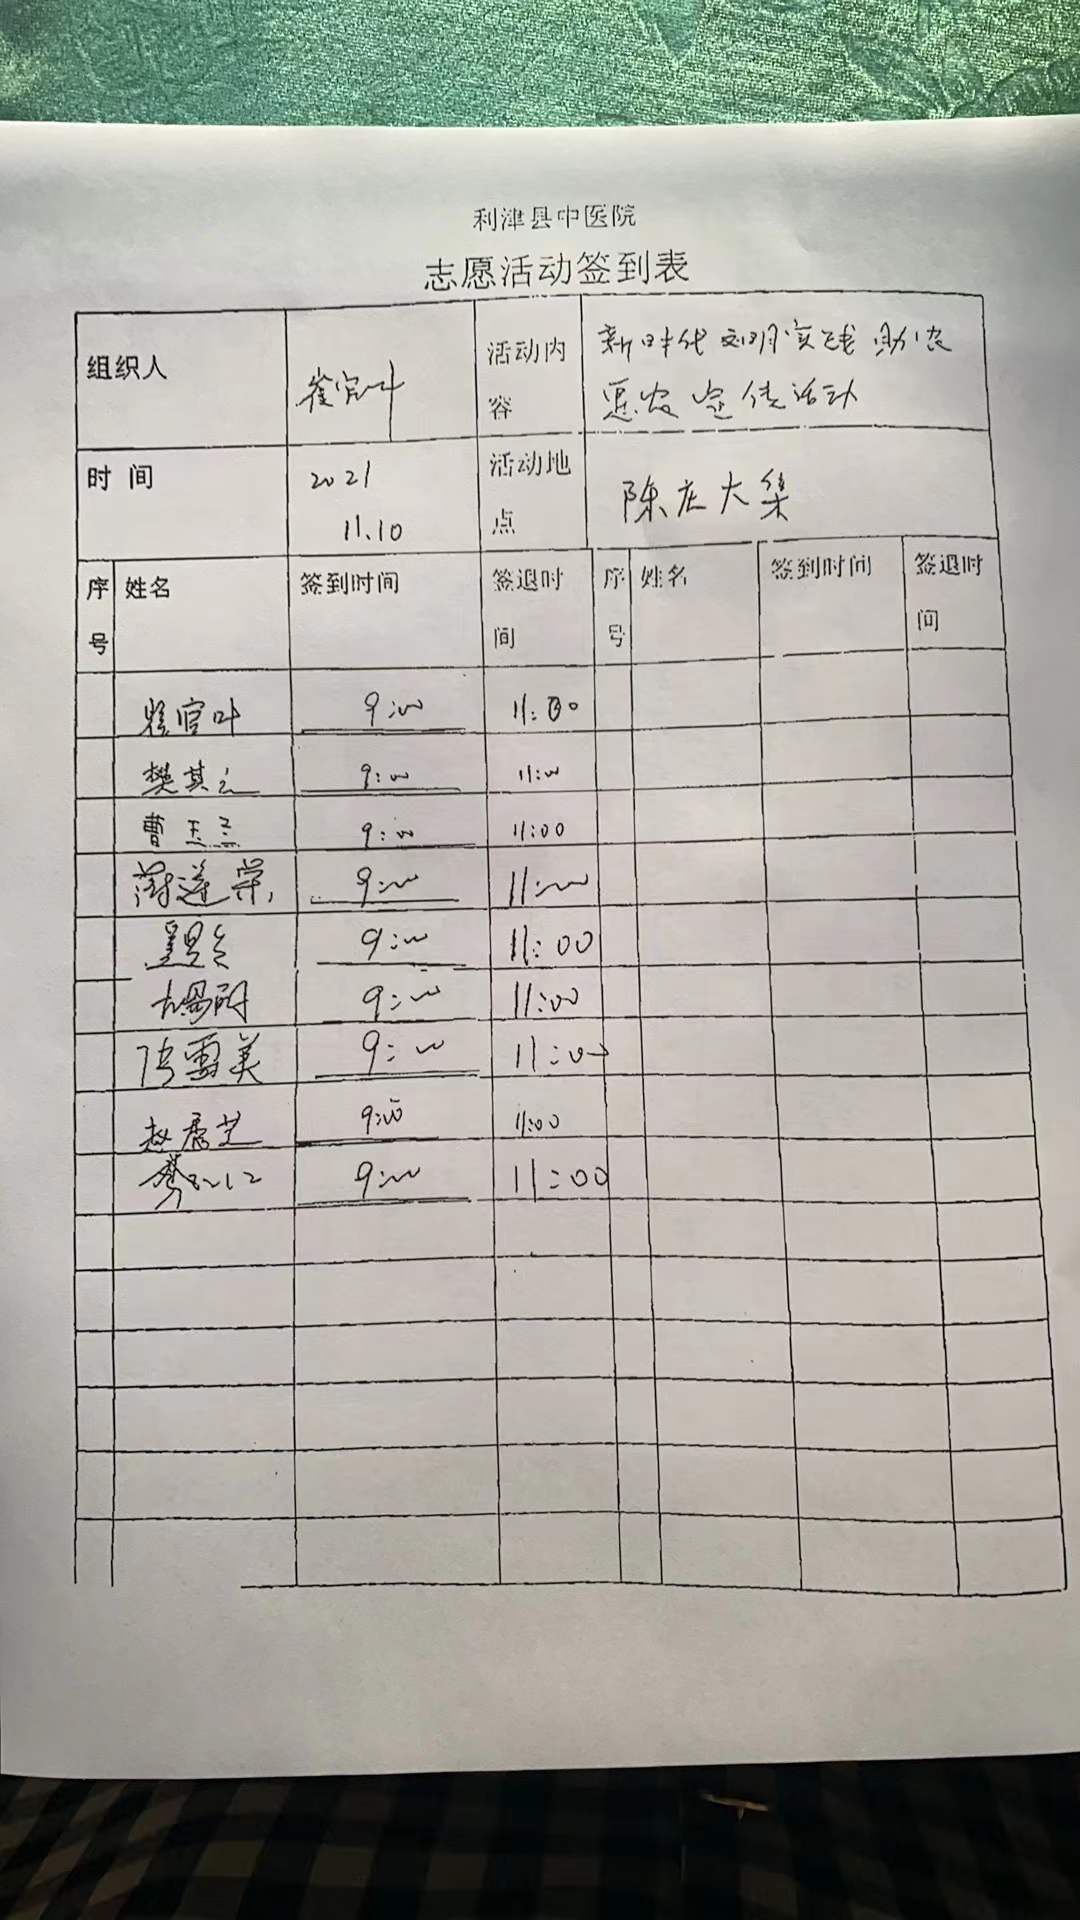 利津县中医院
志愿活动签到表
组织人
崔官叶
活动内
容
新时代文明实践助农
惠农宣传活动
时 间
2021
11.10
活动地
点
陈庄大集
序
号
姓名
签到时间
签退时
间
序
号
姓名
签到时间
签退时
间
崔官叶 9:00 11:00
樊其 9:00 11:00
曹玉兰 9:00 11:00
薄莲荣 9:00 11:00
9:00 11:00
9:00 11:00
张雪美 9:00 11:00
赵彦芝 9:00 11:00
9:00 11:00